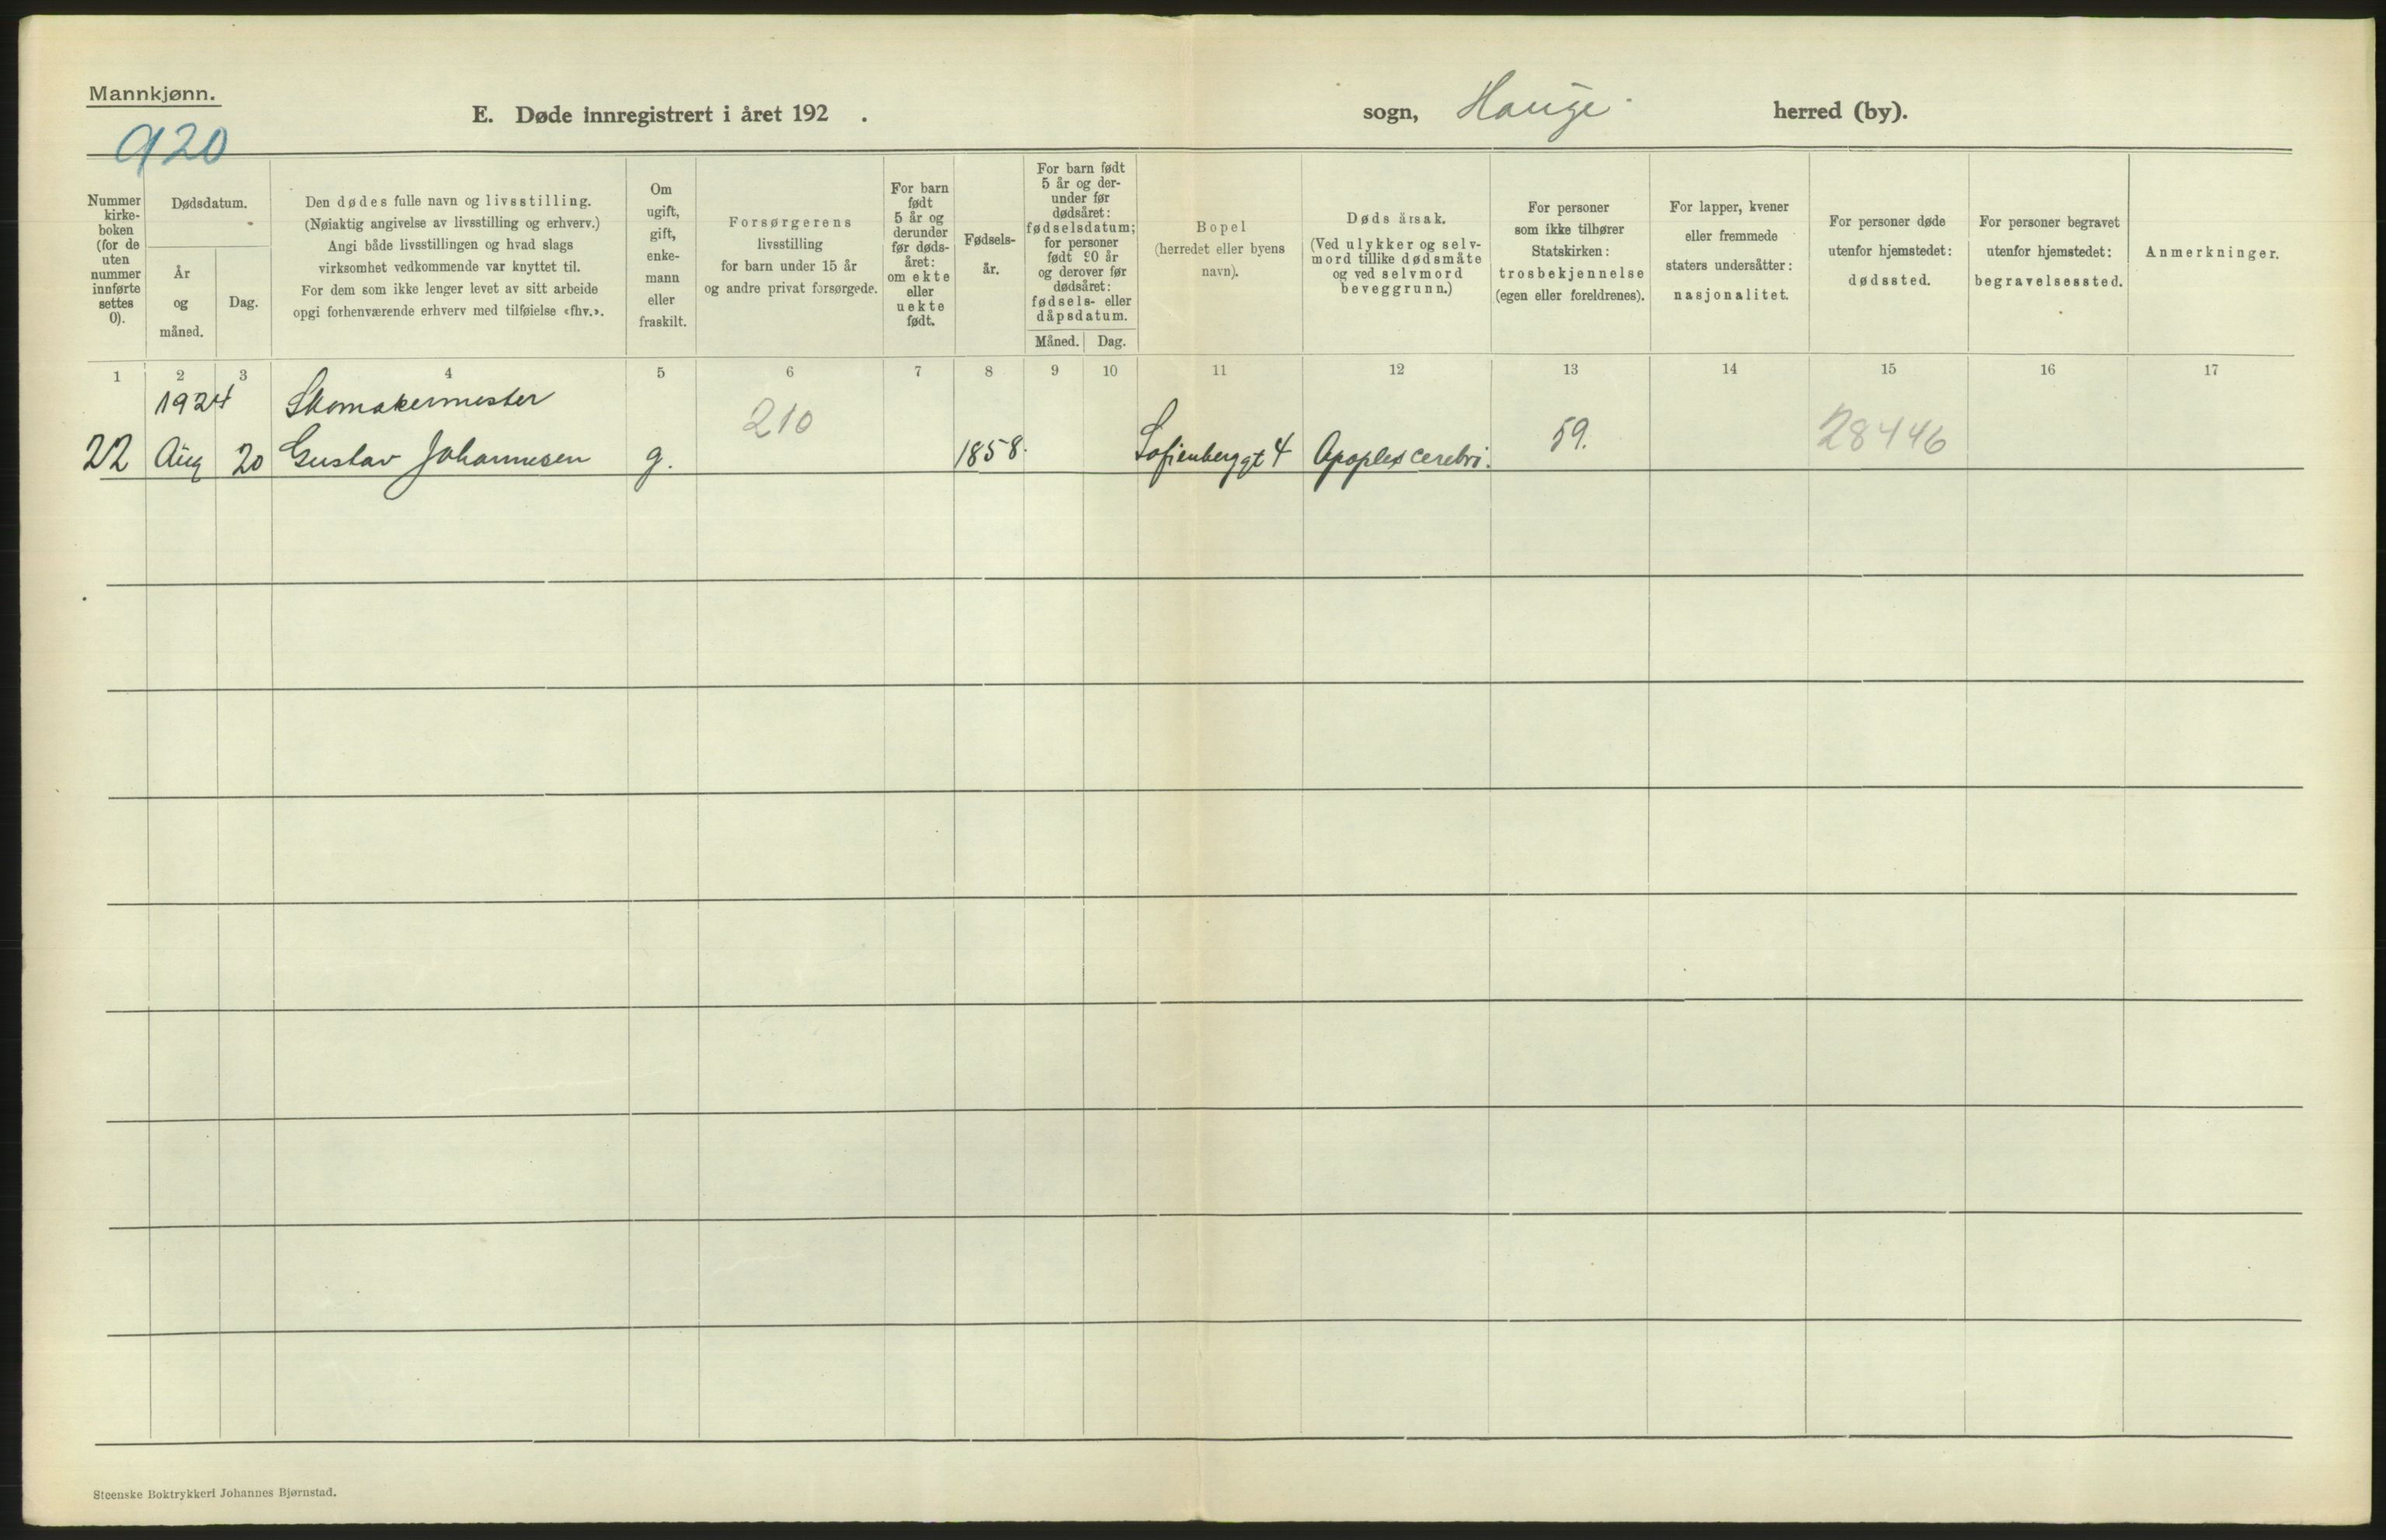 Mannkjønn.
920
E. Døde innregistrert i året 192 .
sogn, Hauge herred (by).
Nummer
kirke-
boken
(for de
uten
nummer
innførte
settes
0).
Dødsdatum.
År
og
måned.
Dag.
Den dødes fulle navn og livsstilling.
(Nøiaktig angivelse av livsstilling og erhverv.)
Angi både livsstillingen og hvad slags
virksomhet vedkommende var knyttet til.
For dem som ikke lenger levet av sitt arbeide
opgi forhenværende erhverv med tilføielse «fhv.».
Om
ugift,
gift,
enke-
mann
eller
fraskilt.
Forsørgerens
livsstilling
for barn under 15 år
og andre privat forsørgede.
For barn
født
5 år og
derunder
før døds-
året:
om ekte
eller
uekte
født.
Fødsels-
år.
For barn født
5 år og der-
under før
dødsåret:
fødselsdatum;
for personer
født 90 år
og derover før
dødsåret:
fødsels- eller
dåpsdatum.
Måned.
Dag.
Bopel
(herredet eller byens
navn).
Dødsårsak.
(Ved ulykker og selv-
mord tillike dødsmåte
og ved selvmord
beveggrunn.)
For personer
som ikke tilhører
Statskirken:
trosbekjennelse
(egen eller foreldrenes).
For lapper, kvener
eller fremmede
staters undersåtter:
nasjonalitet.
For personer døde
utenfor hjemstedet:
dødssted.
For personer begravet
utenfor hjemstedet:
begravelsessted.
Anmerkninger.
1 2 3 4 5 6 7 8 9 10 11 12 13 14 15 16 17
1924 Skomakermester
210
22 Aug 20 Gustav Johannesen g. 1858. Sofienberggt 4 Apoplex cerebri. 59. 28446
Steenske Boktrykkeri Johannes Bjørnstad.